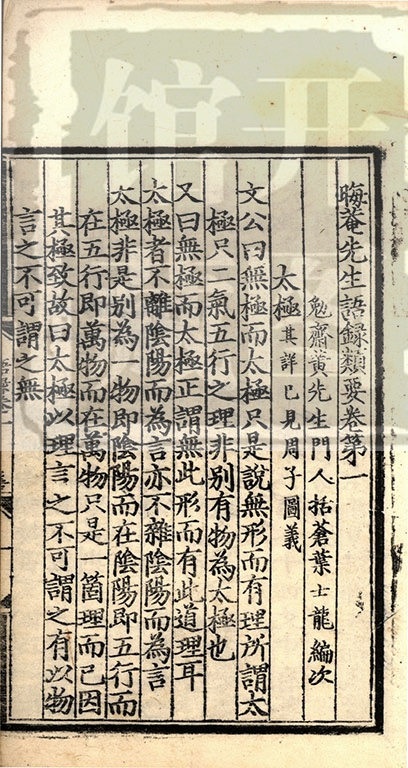 晦菴先生語録類要卷第一
勉齋黃先生門人括蒼葉士龍編次
太極其詳已見周子圖義
文公曰無極而太極只是說無形而有理所謂太
極只二氣五行之理非別有物為太極也
又曰無極而太極正謂無此形而有此道理耳
太極者不離陰陽而為言亦不雜陰陽而為言
太極非是别為一物即陰陽而在陰陽即五行而
在五行即萬物而在萬物只是一箇理而已因
其極致故曰太極以理言之不可謂之有以物
言之不可謂之無